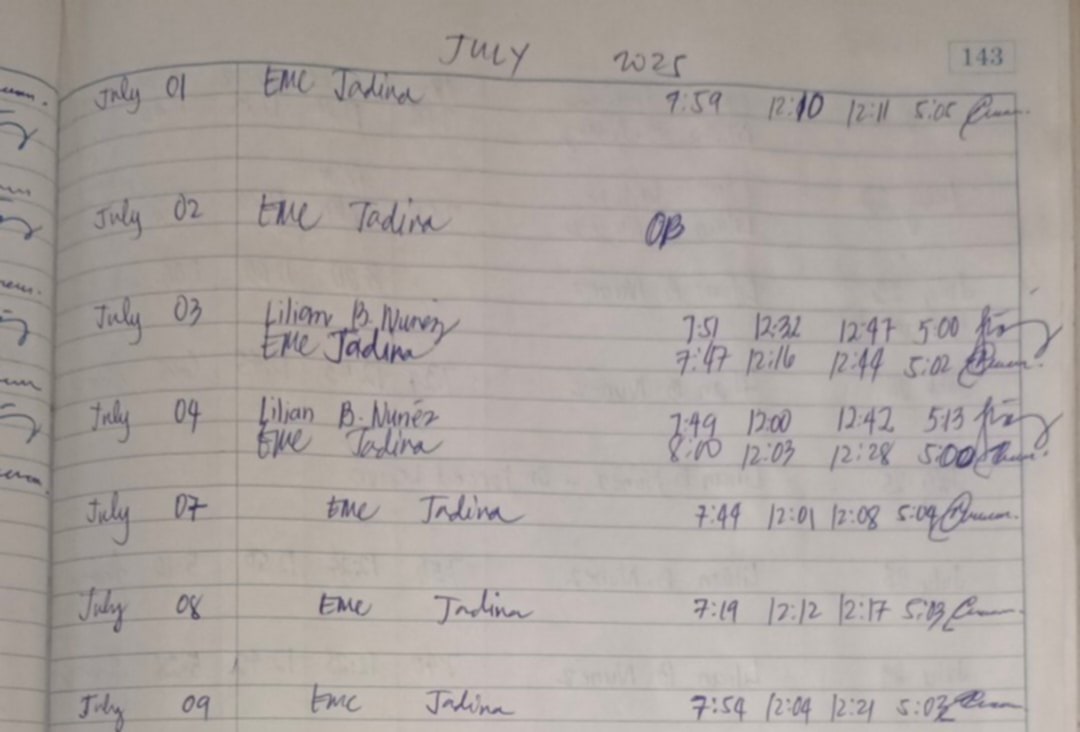 JULY 2025 143
July 01 EMC Jadina 7:59 12:10 12:11 5:05
July 02 EMC Jadina OB
July 03 Lilian B. Nuñez 7:51 12:32 12:47 5:00
EMC Jadina 7:47 12:16 12:44 5:02
July 04 Lilian B. Nuñez 7:49 12:00 12:42 5:13
EMC Jadina 8:00 12:03 12:28 5:00
July 07 EMC Jadina 7:44 12:01 12:08 5:09
July 08 EMC Jadina 7:19 12:12 12:17 5:03
July 09 EMC Jadina 7:54 12:04 12:21 5:03